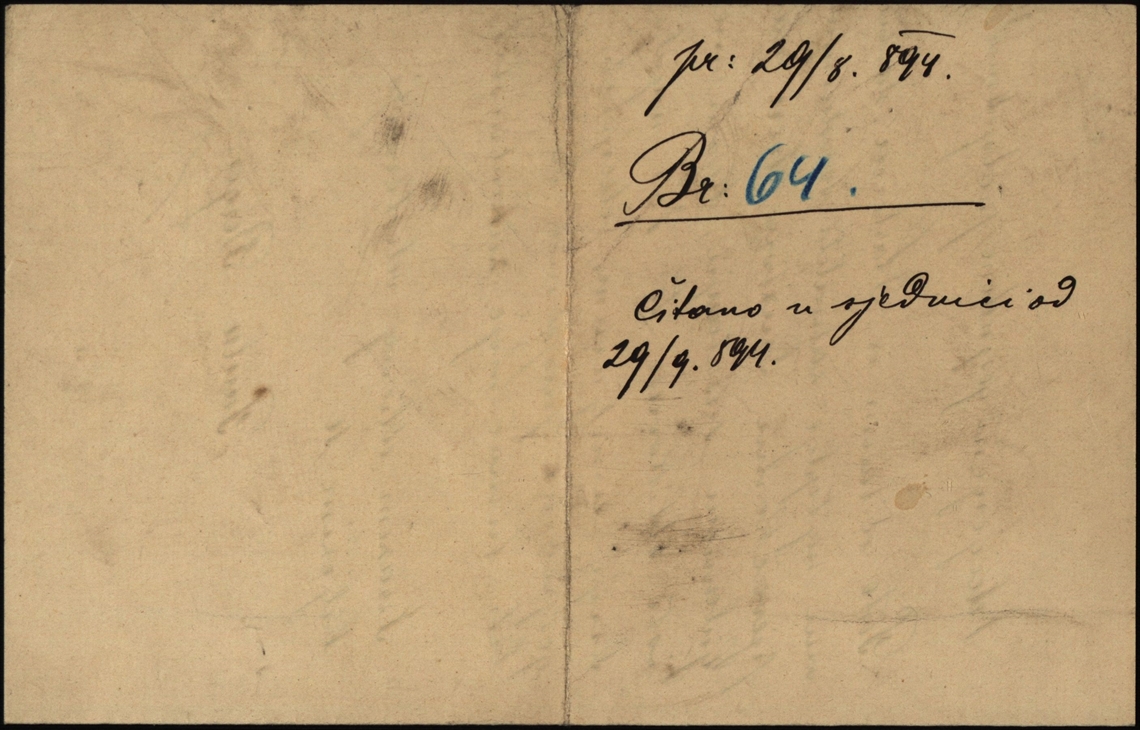 pr: 29/8. 894.
Br: 64.
Čitano u sjednici od
29/9. 894.